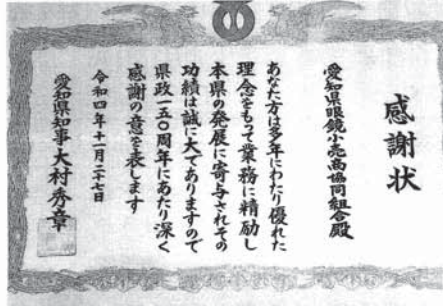 感謝状
愛知県眼鏡小売商協同組合殿
あなた方は多年にわたり優れた
理念をもって業務に精励し
本県の発展に寄与されその
功績は誠に大でありますので
県政一五〇周年にあたり深く
感謝の意を表します
令和四年十一月二十七日
愛知県知事大村秀章